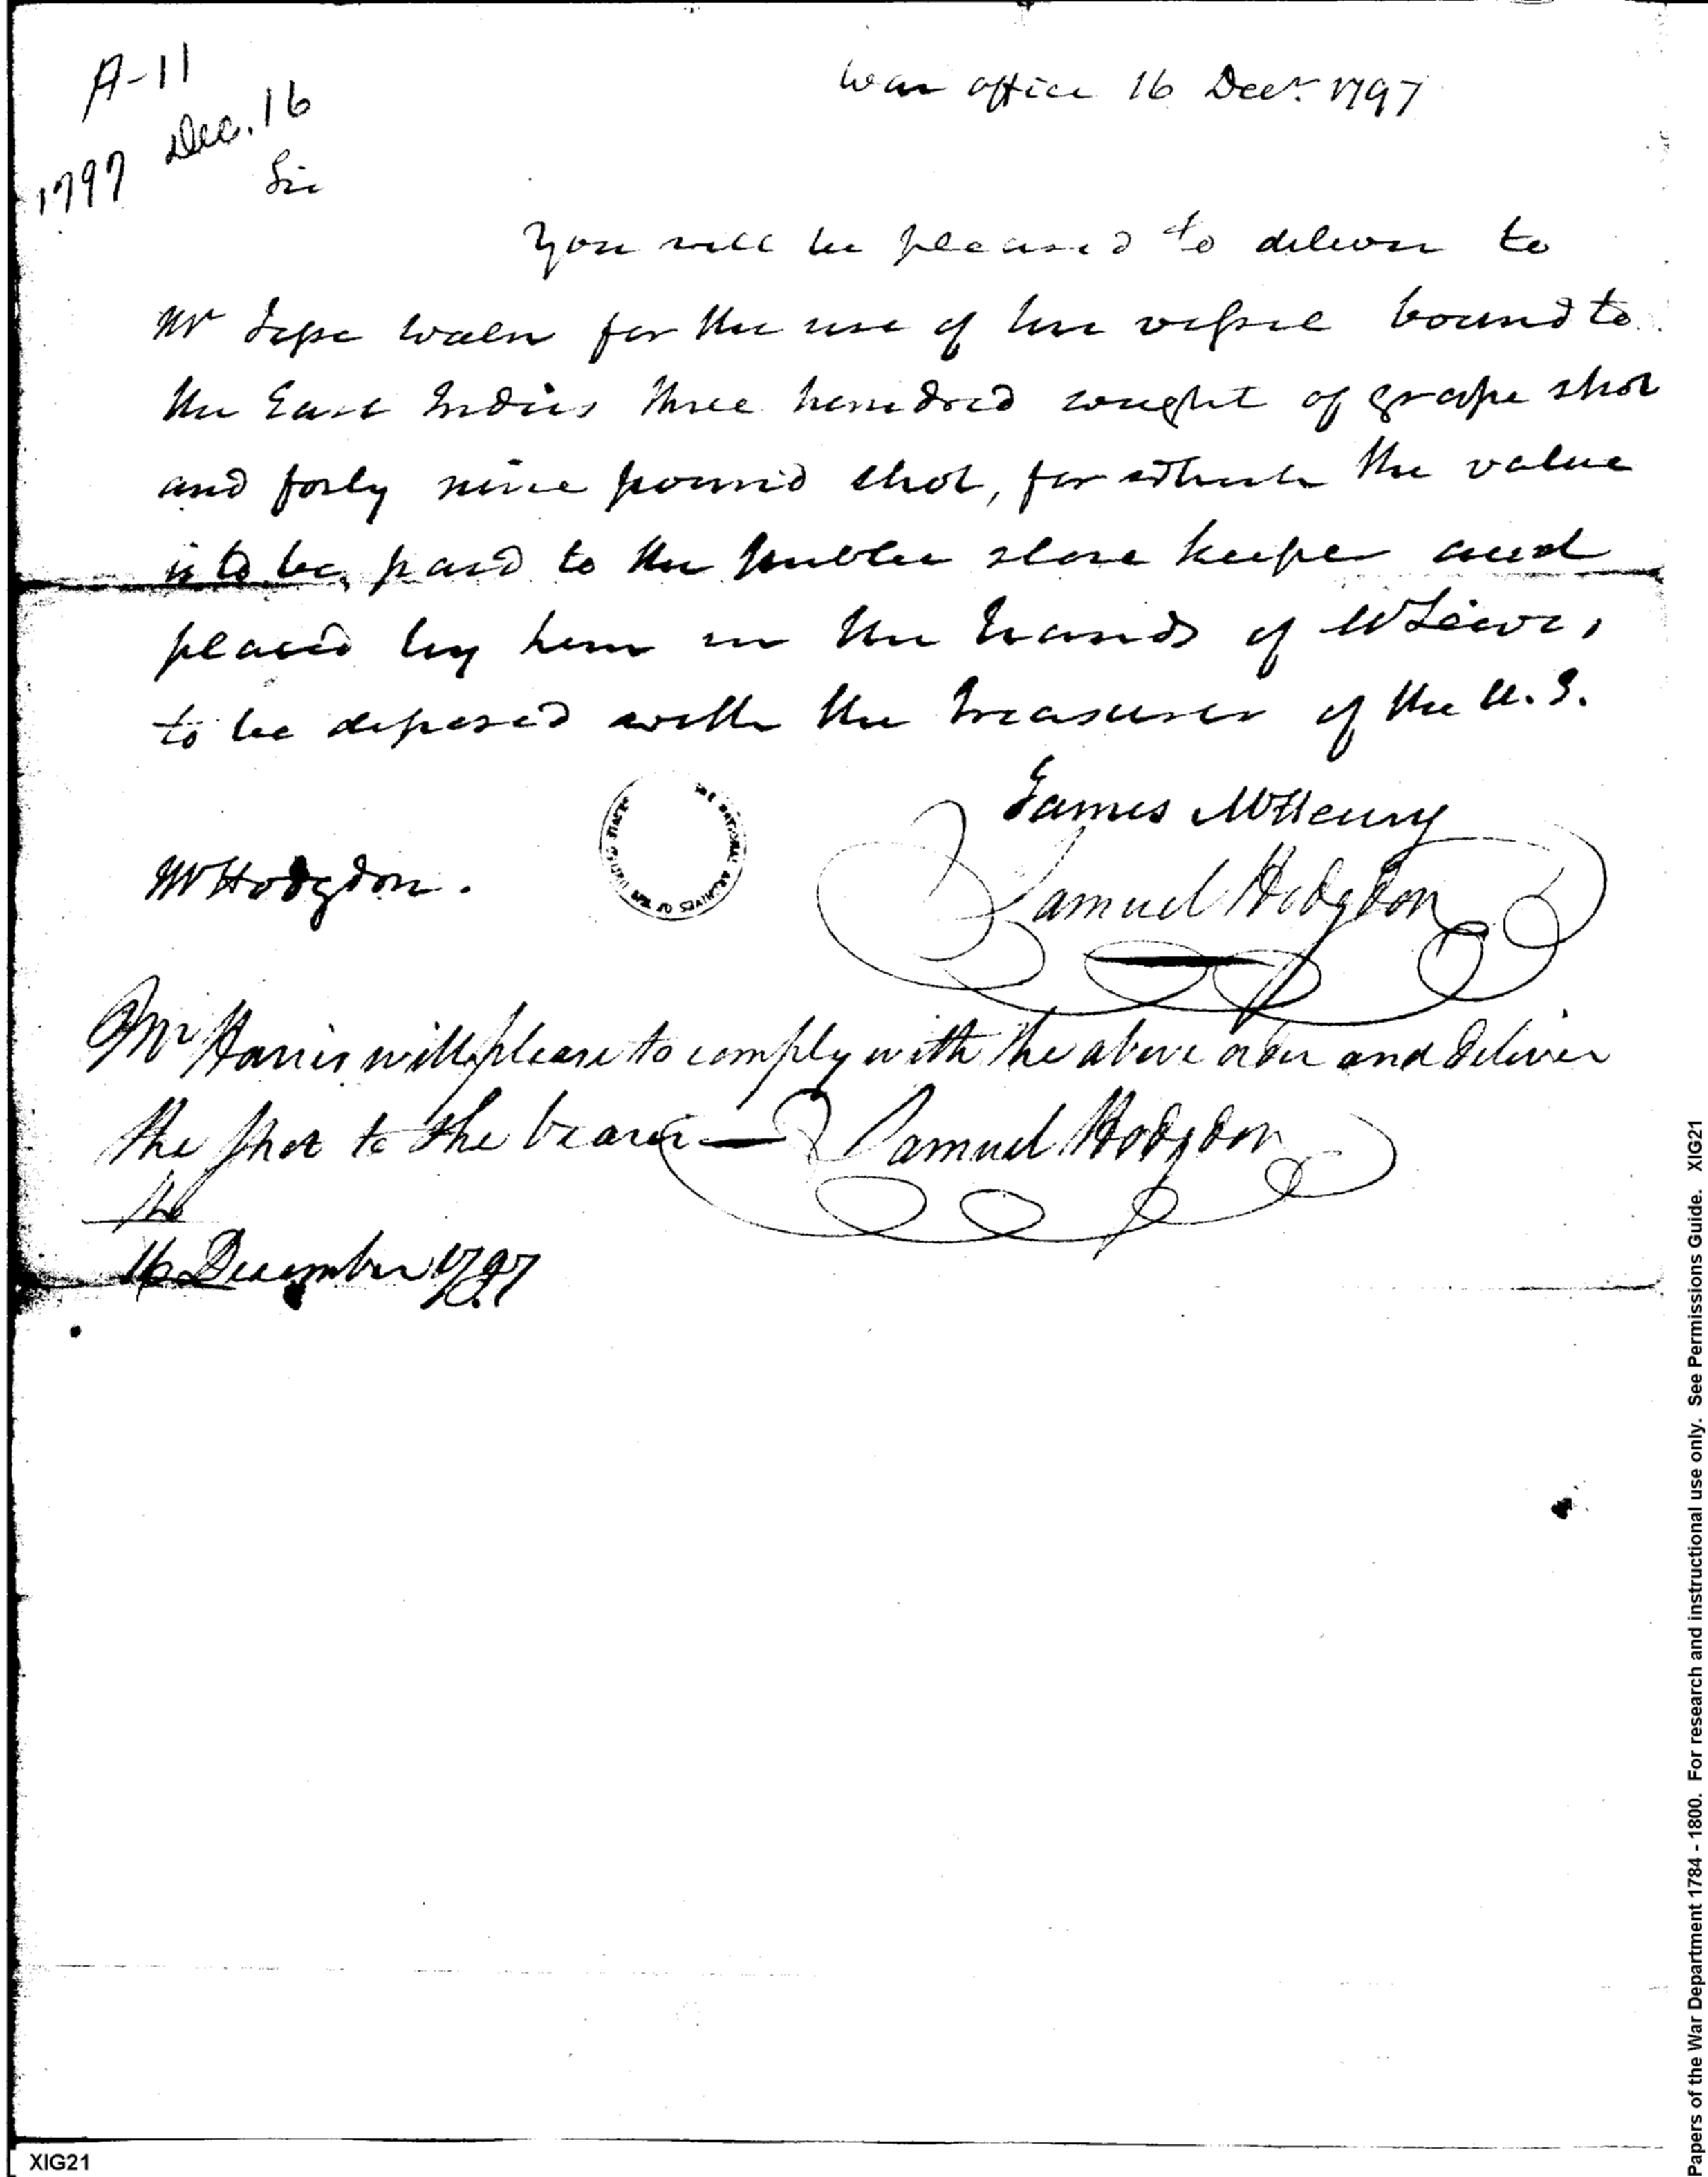 A-11
Dec. 16
1797
War office 16 Decr. 1797
Sir
You will be pleased to deliver to
Mr Jesse Waln for the use of his vessel bound to
the East Indies three hundred weight of grape shot
and forty nine pound shot, for which the value
is to be paid to the public store keeper and
placed by him in the hands of Mr Lewis,
to be deposed with the Treasurer of the U.S.
James McHenry
Mr Hodgdon.
Samuel Hodgdon
Mr Harris will please to comply with the above order and deliver
the shot to the bearer — Samuel Hodgdon
16 December 1797
THE NATIONAL ARCHIVES OF THE UNITED STATES
XIG21
Papers of the War Department 1784 - 1800. For research and instructional use only. See Permissions Guide. XIG21